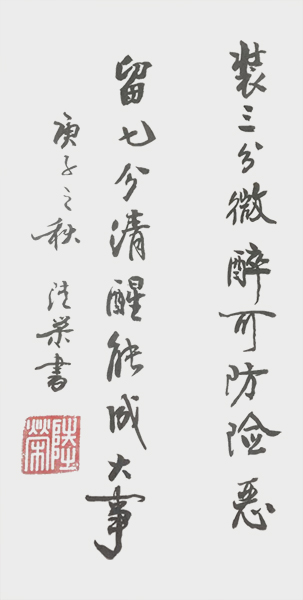 装三分微醉可防险恶
留七分清醒能成大事
庚子之秋 陆荣书
陆荣